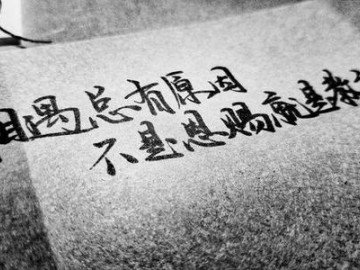 相遇总有原因
不是恩赐就是教